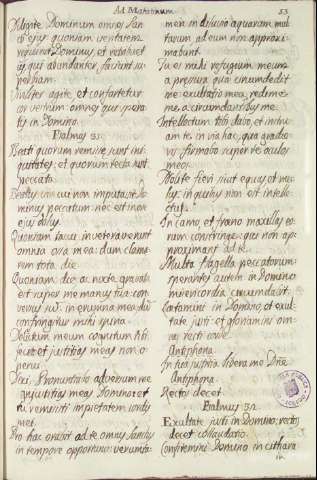 Ad Matutinum
53
Diligite Dominum omnes San
cti ejus quoniam veritatem
requiret Dominus, et retribuet
iis qui abundanter faciunt su
perbiam.
Viriliter agite, et confortetur
cor vestrum: omnes qui spera
tis in Domino.
Psalmus 31.
Beati quorum remisse sunt ini
quitates, et quorum tecta sunt
peccata.
Beatus vir cui non imputavit Do
minus peccatum nec est in spi
ritu ejus dolus.
Quoniam tacui inveteraverunt
omnia ossa mea: dum clama
rem tota die.
Quoniam die ac nocte gravata
est super me manus tua: con
versus sum in erumna mea dum
configitur mihi spina.
Delictum meum cognitum tibi
feci: et justitiam meam non a
bscondi.
Dixi: Confitebor adversum me
injustitiam meam Domino: et
tu remisisti impietatem peccati
mei.
Pro hac orabit ad te omnis Sanctus
in tempore opportuno: verumta
men in diluvio aquarum mul
tarum ad eum non approxi
mabunt.
Tu es mihi refugium meum
a pressura que circumdedit
me: exultatio mea, redime
me a circumdantibus me.
Intellectum tibi dabo, et instru
am te in via hac, qua gradie
ris: firmabo super te oculos
meos.
Nolite fieri sicut equus et mu
lus: in quibus non est intelle
ctus.
In camo, et freno maxillas eo
rum constringe: qui non ap
proximant ad te.
Multa flagella peccatorum:
sperantes autem in Domino
misericordia circumdabit.
Letamini in Domino, et exul
tate justi: et gloriamini om
nes recti corde.
Antiphona.
In tua justitia libera me Dne
Antiphona.
Rectos decet
Psalmus 32.
Exultate justi in Domino: rectos
decet collaudatio.
Confitemini Domino in cithara